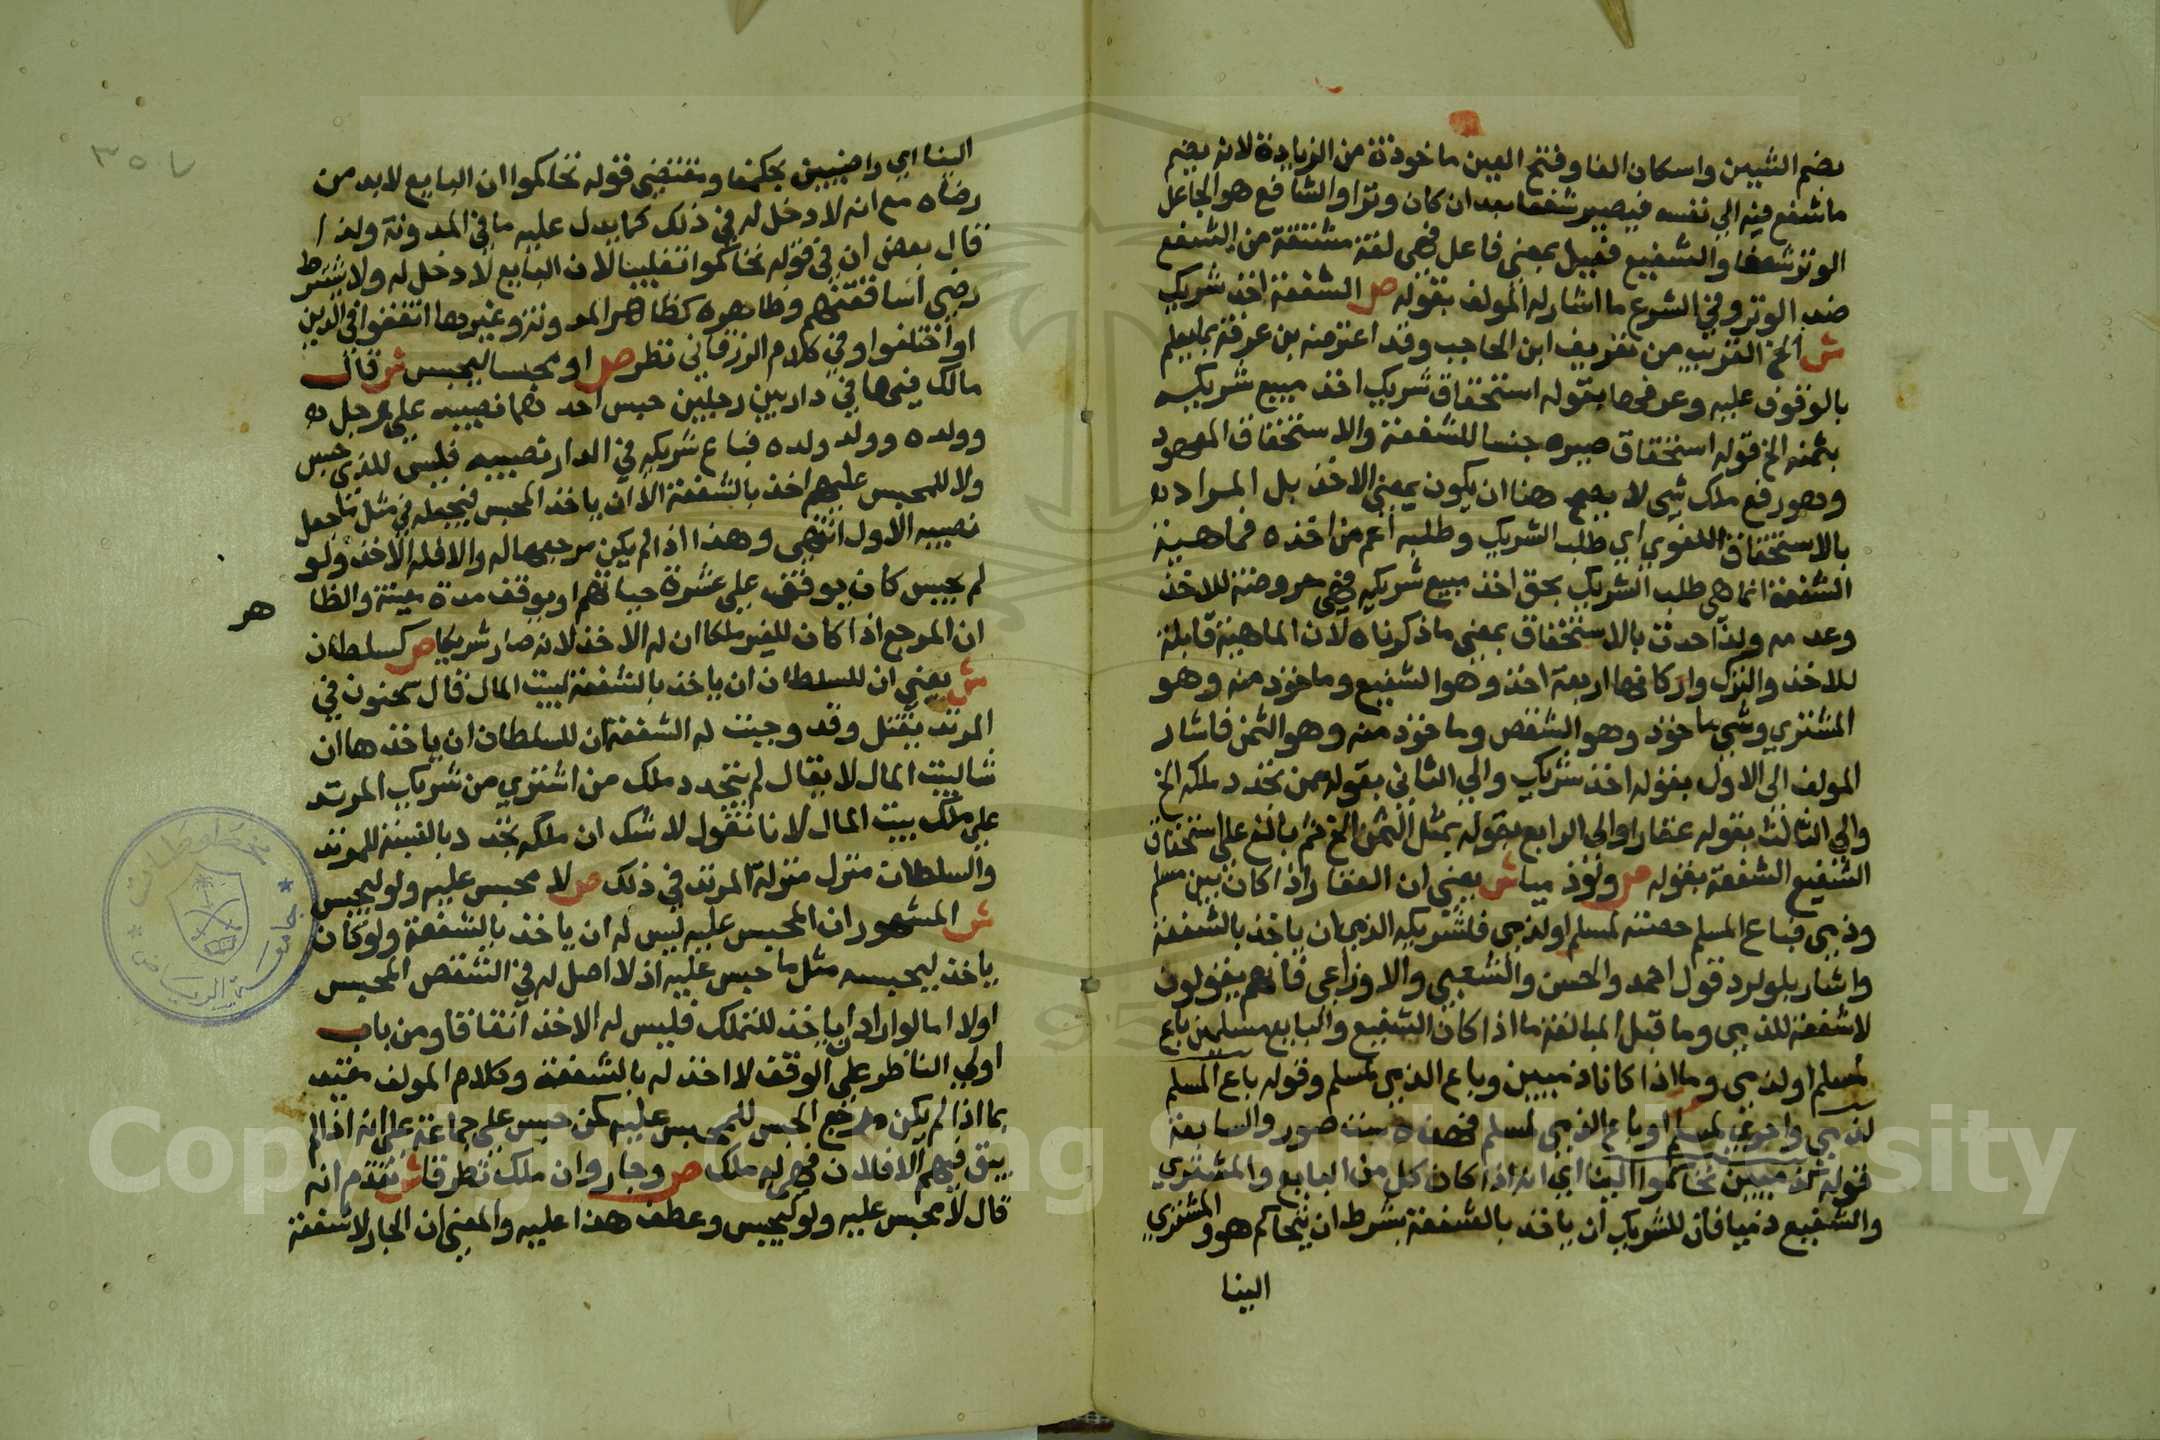 بضم الشين واسكان الفا وفتح العين ماخوذة من الزيادة لانه يضم
ما شفع فيه الى نفسه فيصير شفعا بعد ان كان وترا والشافع هو الجاعل
الوتر شفعا والشفيع فعيل بمعنى فاعل فهى لغة مشتقة من الشفع
ضد الوتر وفي الشرع ما اشار له المولف بقوله ص الشفعة اخذ شريك
ش الخ القريب من تعريف ابن الحاجب وقد اعترضه بن عرفة بما يعلم
بالوقوف عليه وعرفها بقوله استحقاق شريك اخذ مبيع شريكه
بثمنه الخ قوله استحقاق صيره جنسا للشفعة والاستحقاق المعهود
وهو رفع ملك شى لا يصح هنا ان يكون بمعنى الاخذ بل المراد به
بالاستحقاق اللغوي اي طلب الشريك وطلبه اعم من اخذه فماهية
الشفعة انما هى طلب الشريك بحق اخذ مبيع شريكه فهى معروضة للاخذ
وعدمه ولذا حدت بالاستحقاق بمعنى ما ذكرناه لان الماهية قابلة
للاخذ والترك واركانها اربعة اخذ وهو الشفيع وماخوذ منه وهو
المشتري وشي ماخوذ وهو الشقص وماخوذ منه وهو الثمن فاشار
المولف الى الاول بقوله اخذ شريك والي الثاني بقوله ممن تجدد ملكه الخ
والي الثالث بقوله عقارا والى الرابع بقوله بمثل الثمن الخ ثم بالغ على استحقاق
الشفيع الشفعة بقوله ص ولو ذميا ش يعني ان العقار اذا كان بين مسلم
وذمي فباع المسلم حصته لمسلم او لذمي فلشريكه الذمي ان ياخذ بالشفعة
واشار بلو لرد قول احمد والحسن والشعبي والاوزاعي فانهم يقولون
لا شفعة للذمي وما قبل المبالغة ما اذا كان الشفيع والبايع مسلمين باع
لمسلم او لذمي وما اذا كانا ذميين وباع الذمي لمسلم وقوله باع المسلم
لذمي واحري لمسلم او باع الذمي لمسلم فهذه ست صور والسابعة
قوله كذميين تحاكموا الينا اي انه اذا كان كل من البايع والمشتري
والشفيع ذميا فان للشريك ان ياخذ بالشفعة بشرط ان يتحاكم هو والمشتري
الينا
٣٥٧
الينا اي راضيين بحكمنا ومقتضى قوله تحاكموا ان البايع لا بد من
رضاه مع انه لا دخل له في ذلك كما يدل عليه ما في المدونة ولذا
قال بعض ان في قوله تحاكموا تغليبا لان البايع لا دخل له ولا يشترط
رضي اساقفتهم وظاهره كظاهر المدونة وغيرها اتفقوا في الدين
او اختلفوا وفي كلام الزرقاني نظر ص او محبسا ليحبس ش قال
مالك فيها في دار بين رجلين حبس احدهما نصيبه علي رجل
وولده وولد ولده فباع شريكه في الدار نصيبه فليس للذي حبس
ولا للمحبس عليهم اخذ بالشفعة الا ان ياخذ المحبس فيجعله في مثل ما جعل
نصيبه الاول انتهى وهذا اذا لم يكن مرجعها له والا فله الاخذ ولو
لم يحبس كان يوقف على عشرة حياتهم او يوقف مدة معينة والظا
هر
ان المرجع اذا كان للغير ملكا ان له الاخذ لانه صار شريكا ص كسلطان
ش يعني ان للسلطان ان ياخذ بالشفعة لبيت المال قال سحنون في
المرتد يقتل وقد وجبت له الشفعة ان للسلطان ان ياخذها ان
شا لبيت المال لا يقال لم يتجدد ملك من اشتري من شريك المرتد
على ملك بيت المال لانا نقول لا شك ان ملكه تجدد بالنسبة للمرتد
والسلطان منزل منزلة المرتد في ذلك ص لا محبس عليه ولو ليحبس
ش المشهور ان المحبس عليه ليس له ان ياخذ بالشفعة ولو كان
ياخذ ليحبسه مثل ما حبس عليه اذ لا اصل له في الشقص المحبس
اولا اما لو اراد ان ياخذ للتملك فليس له الاخذ اتفاقا ومن باب
اولي الناظر علي الوقف لا اخذ له بالشفعة وكلام المولف مقيد
بما اذا لم يكن مرجع الحبس للمحبس عليه كمن حبس علي جماعة على انه اذا لم
يبق فيهم الا فلان فهى له ملك ص وجار وان ملك تطرقا ش تقدم انه
قال لا محبس عليه ولو ليحبس وعطف هذا عليه والمعنى ان الجار لا شفعة
جامعة الرياض
مخطوطات
Copyright © King Saud University